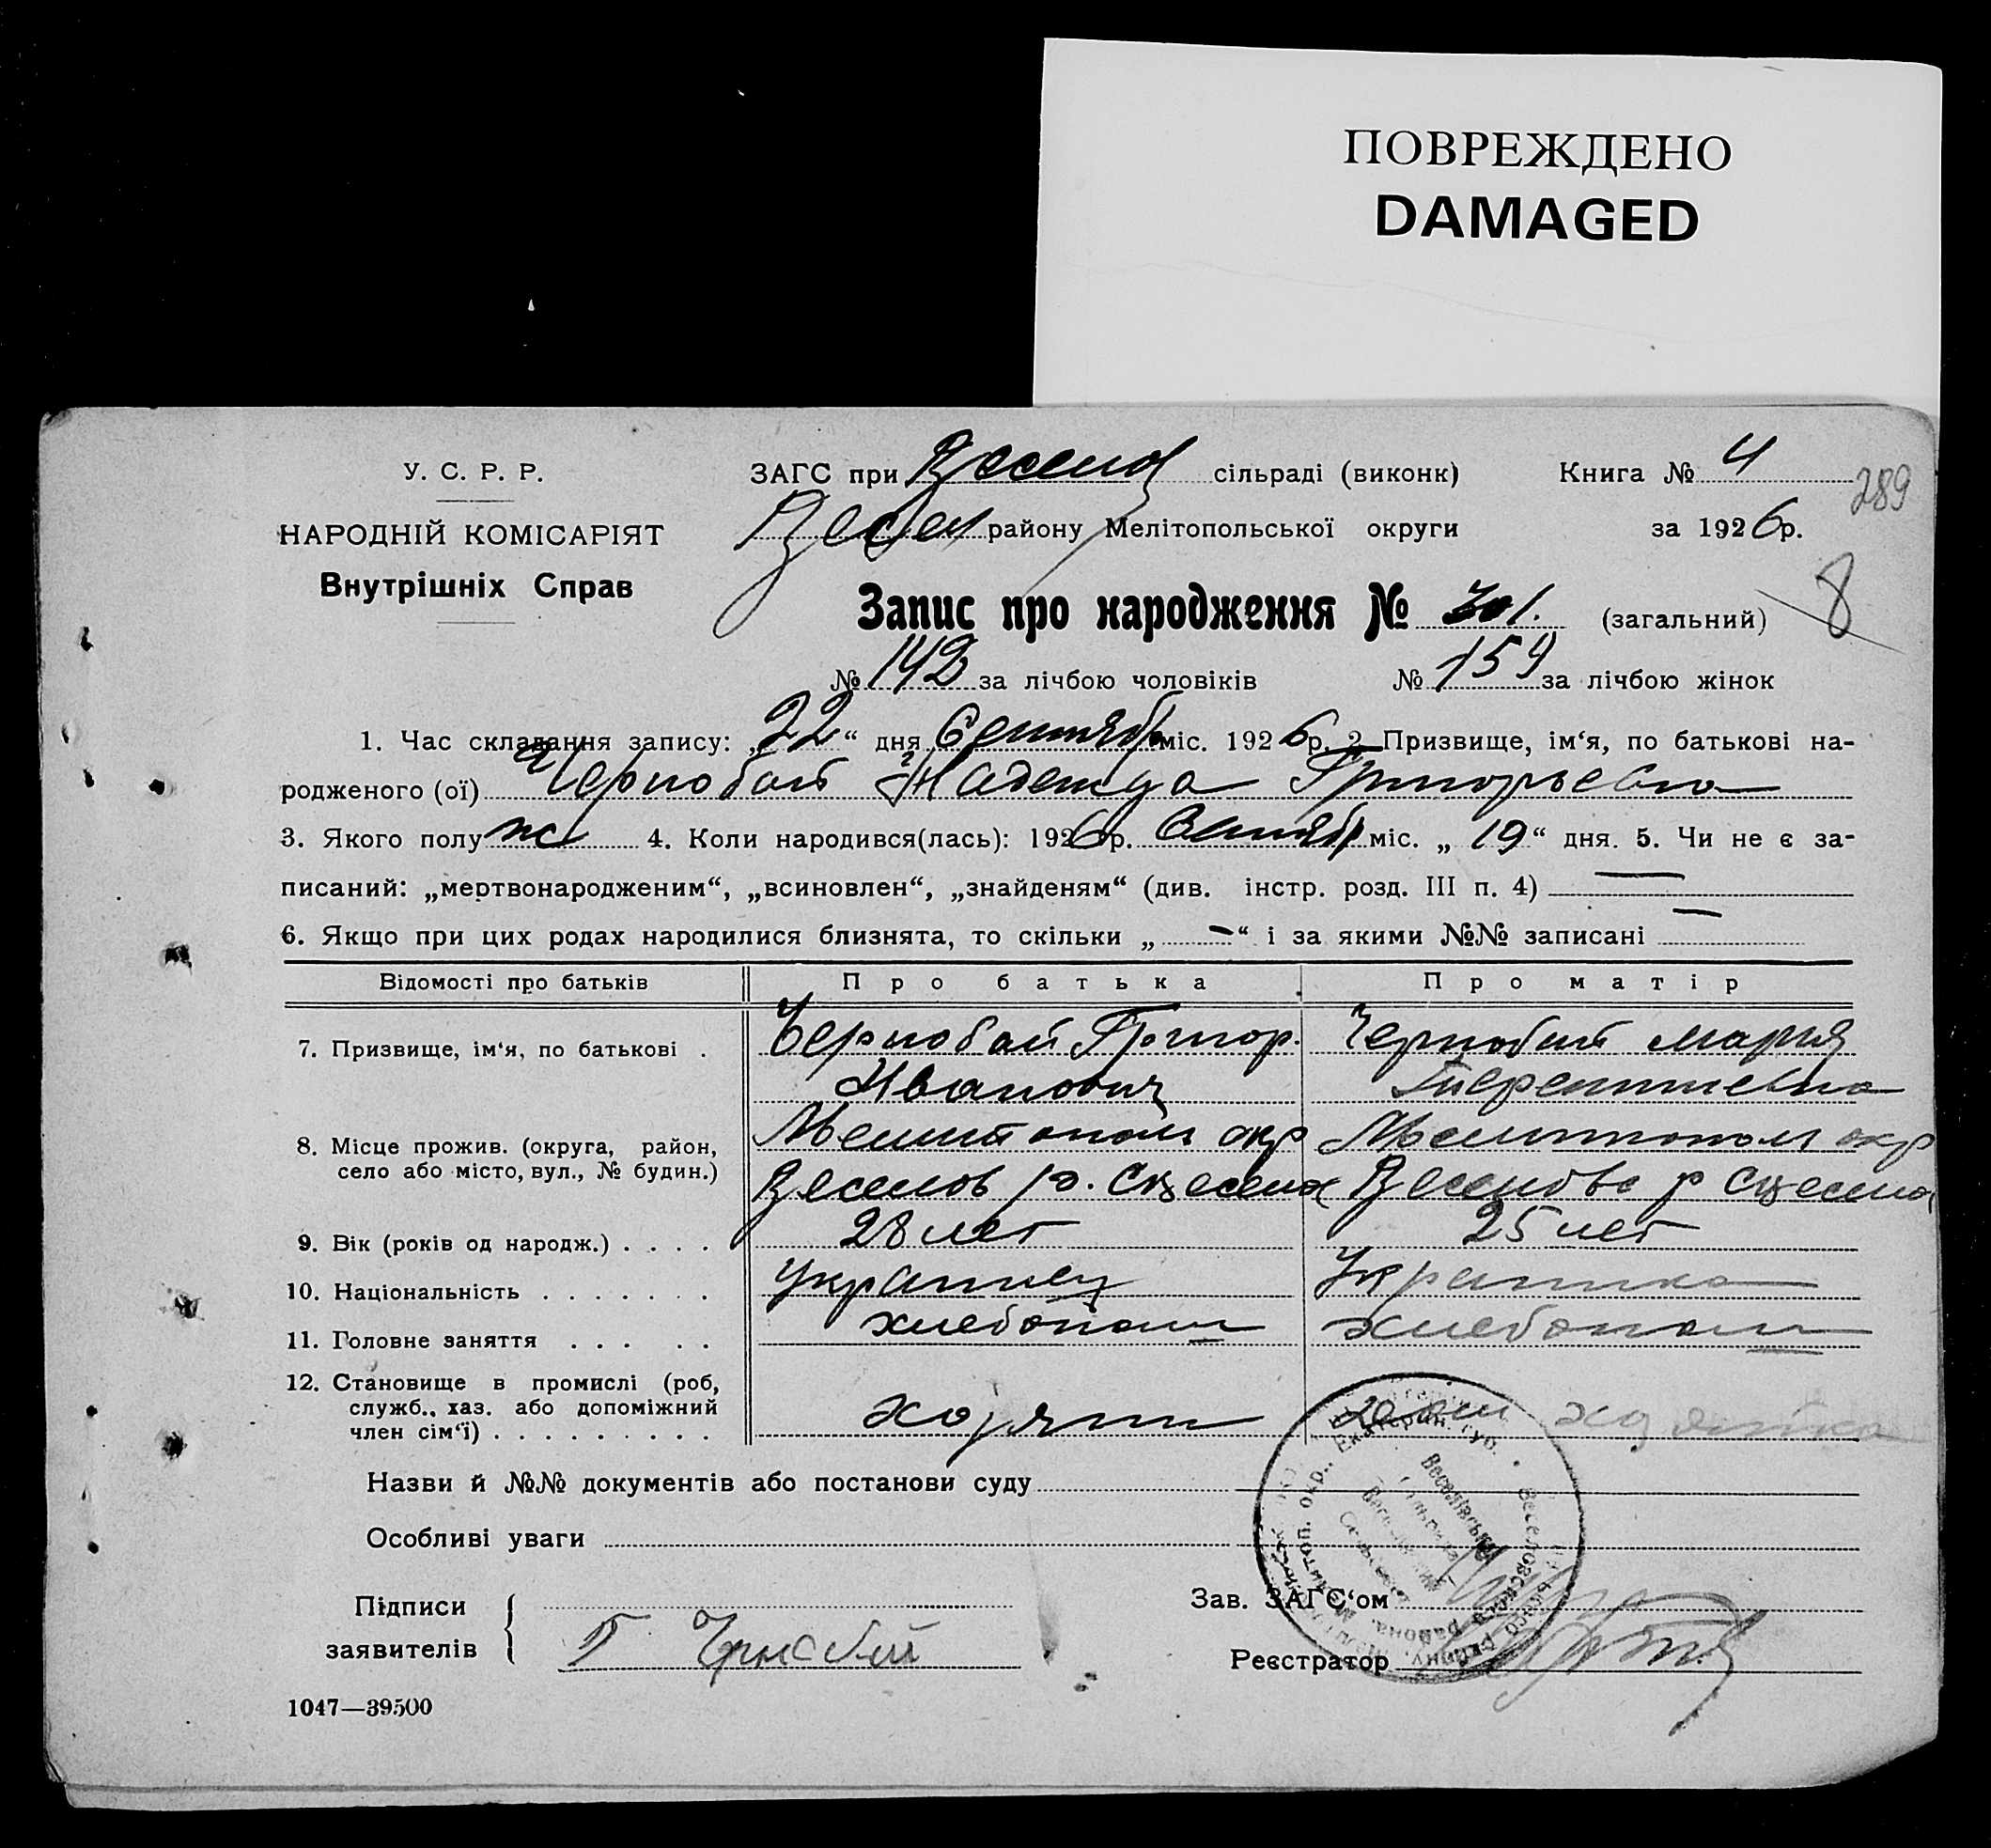 ПОВРЕЖДЕНО
DAMAGED
У. С. Р. Р.
НАРОДНІЙ КОМІСАРІЯТ
Внутрішніх Справ
ЗАГС при Веселов сільраді (виконк) Книга № 4
289
Весел району Мелітопольської округи за 1926р.
8
Запис про народження № 301. (загальний)
№ 142 за лічбою чоловіків № 159 за лічбою жінок
1. Час складання запису: „22“ дня Сентября міс. 1926р. 2. Призвище, ім‘я, по батькові на-
родженого (ої) Чернобай Надежда Григорьевна
3. Якого полу ж 4. Коли народився(лась): 1926р. Сентябр міс. „19“ дня. 5. Чи не є за-
писаний: „мертвонародженим“, „всиновлен“, „знайденям“ (див. інстр. розд. III п. 4) —
6. Якщо при цих родах народилися близнята, то скільки „—“ і за якими №№ записані —
Відомості про батьків Про батька Про матір
7. Призвище, ім‘я, по батькові . Чернобай Григор. Чернобай Мария
Иванович Терентиевна
8. Місце прожив. (округа, район, Мелитополь окр Мелитополь окр
село або місто, вул., № будин.) Веселов р. Веселов р
9. Вік (років од народж.) . . . . 28 лет 25 лет
10. Національність . . . . . . . Украинец Украинка
11. Головне заняття . . . . . хлебопаш хлебопаш
12. Становище в промислі (роб,
служб., хаз. або допоміжний
член сім‘ї) . . . . . . . . . хозяин хозяйка
Назви й №№ документів або постанови суду
Особливі уваги
Підписи
заявителів Г Чернобай
Зав. ЗАГС‘ом
Реєстратор
1047—39500